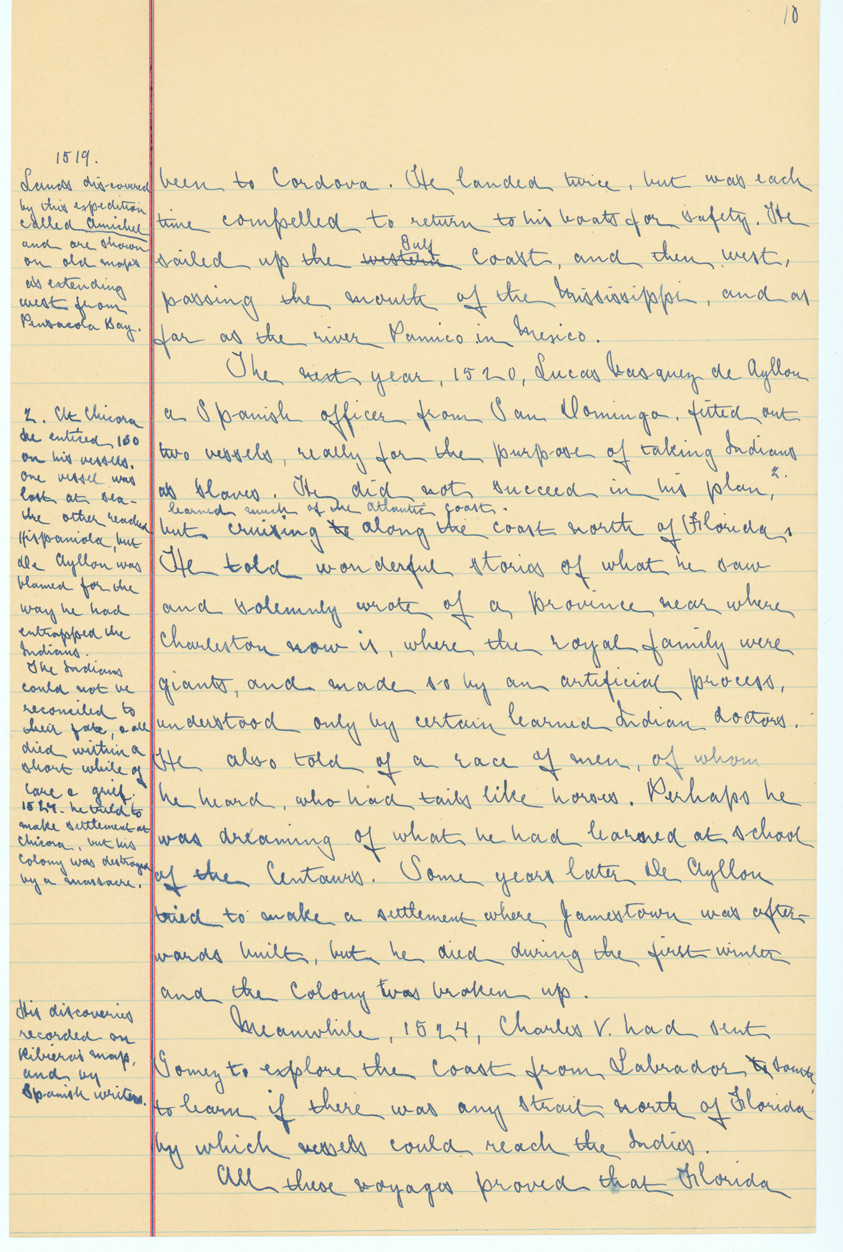 10
1519.
Lands discovered
by this expedition
called Amichel
and are shown
on old maps
as extending
west from
Pensacola Bay.
been to Cordova. He landed twice, but was each
time compelled to return to his boats for safety. He
Gulf
sailed up the western coast, and then west,
passing the mouth of the Mississippi, and as
far as the river Panuco in Mexico.
The next year, 1520, Lucas Vasquez de Ayllon
a Spanish officer from San Domingo, fitted out
two vessels, really for the purpose of taking Indians
as slaves. He did not succeed in his plan, 2.
learned much of the Atlantic coast.
but cruising to along the coast north of Florida.
He told wonderful stories of what he saw
and solemnly wrote of a province near where
Charleston now is, where the royal family were
giants, and made so by an artificial process,
understood only by certain learned Indian doctors.
He also told of a race of men, of whom
he heard, who had tails like horses. Perhaps he
was dreaming of what he had learned at school
of the Centaurs. Some years later De Ayllon
tried to make a settlement where Jamestown was after-
wards built, but he died during the first winter
and the colony was broken up.
2. At Chicora
he enticed 130
on his vessels.
one vessel was
lost at sea-
the other reached
Hispaniola, but
De Ayllon was
blamed for the
way he had
entrapped the
Indians.
The Indians
could not be
reconciled to
their fate, & all
died within a
short while of
care & grief.
1524. he tried to
make settlement at
Chicora, but his
colony was destroyed
by a massacre.
Meanwhile, 1524, Charles V. had sent
Gomez to explore the coast from Labrador to south,
to learn if there was any strait north of Florida
by which vessels could reach the Indies.
All these voyages proved that Florida
His discoveries
recorded on
Ribiero's map,
and by
Spanish writers.